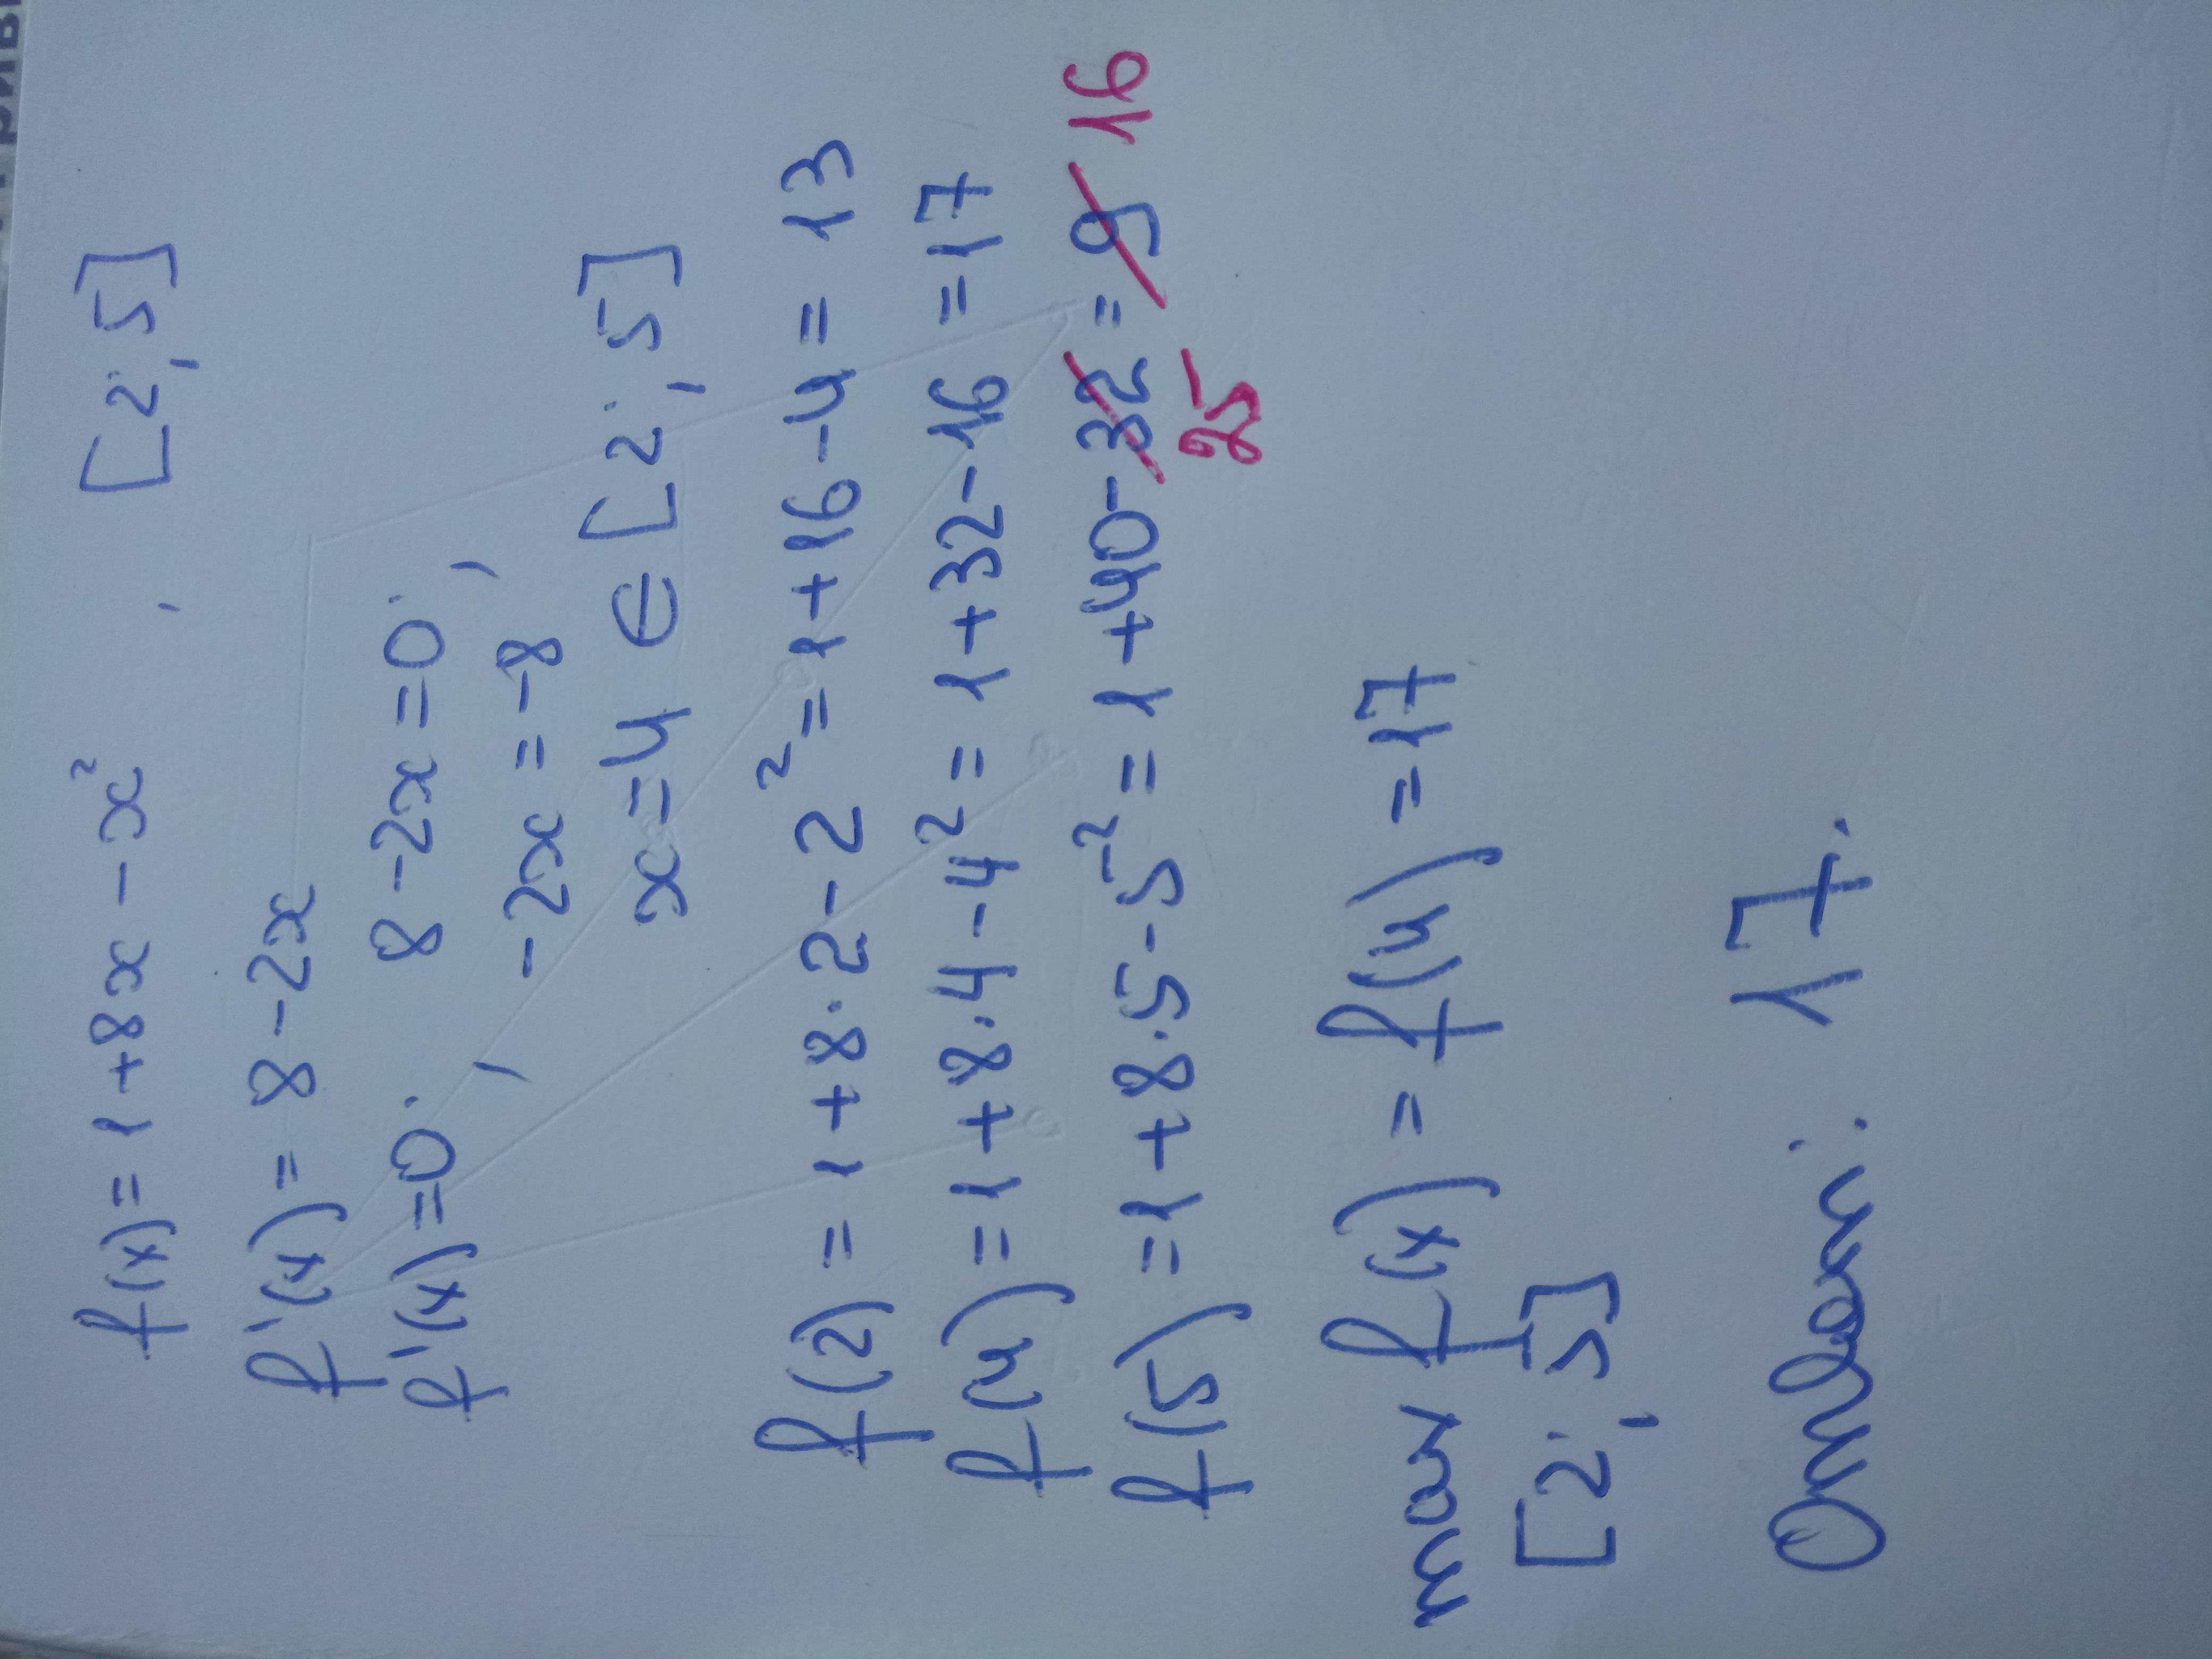 f(x) = 1 + 8x - x² , [2; 5]
f'(x) = 8 - 2x
f'(x) = 0; 8 - 2x = 0;
-2x = -8
x = 4 ∈ [2; 5]
f(2) = 1 + 8·2 - 2² = 1 + 16 - 4 = 13
f(4) = 1 + 8·4 - 4² = 1 + 32 - 16 = 17
f(5) = 1 + 8·5 - 5² = 1 + 40 - 32 = 9 16
25
max f(x) = f(4) = 17
[2; 5]
Ответ: 17.